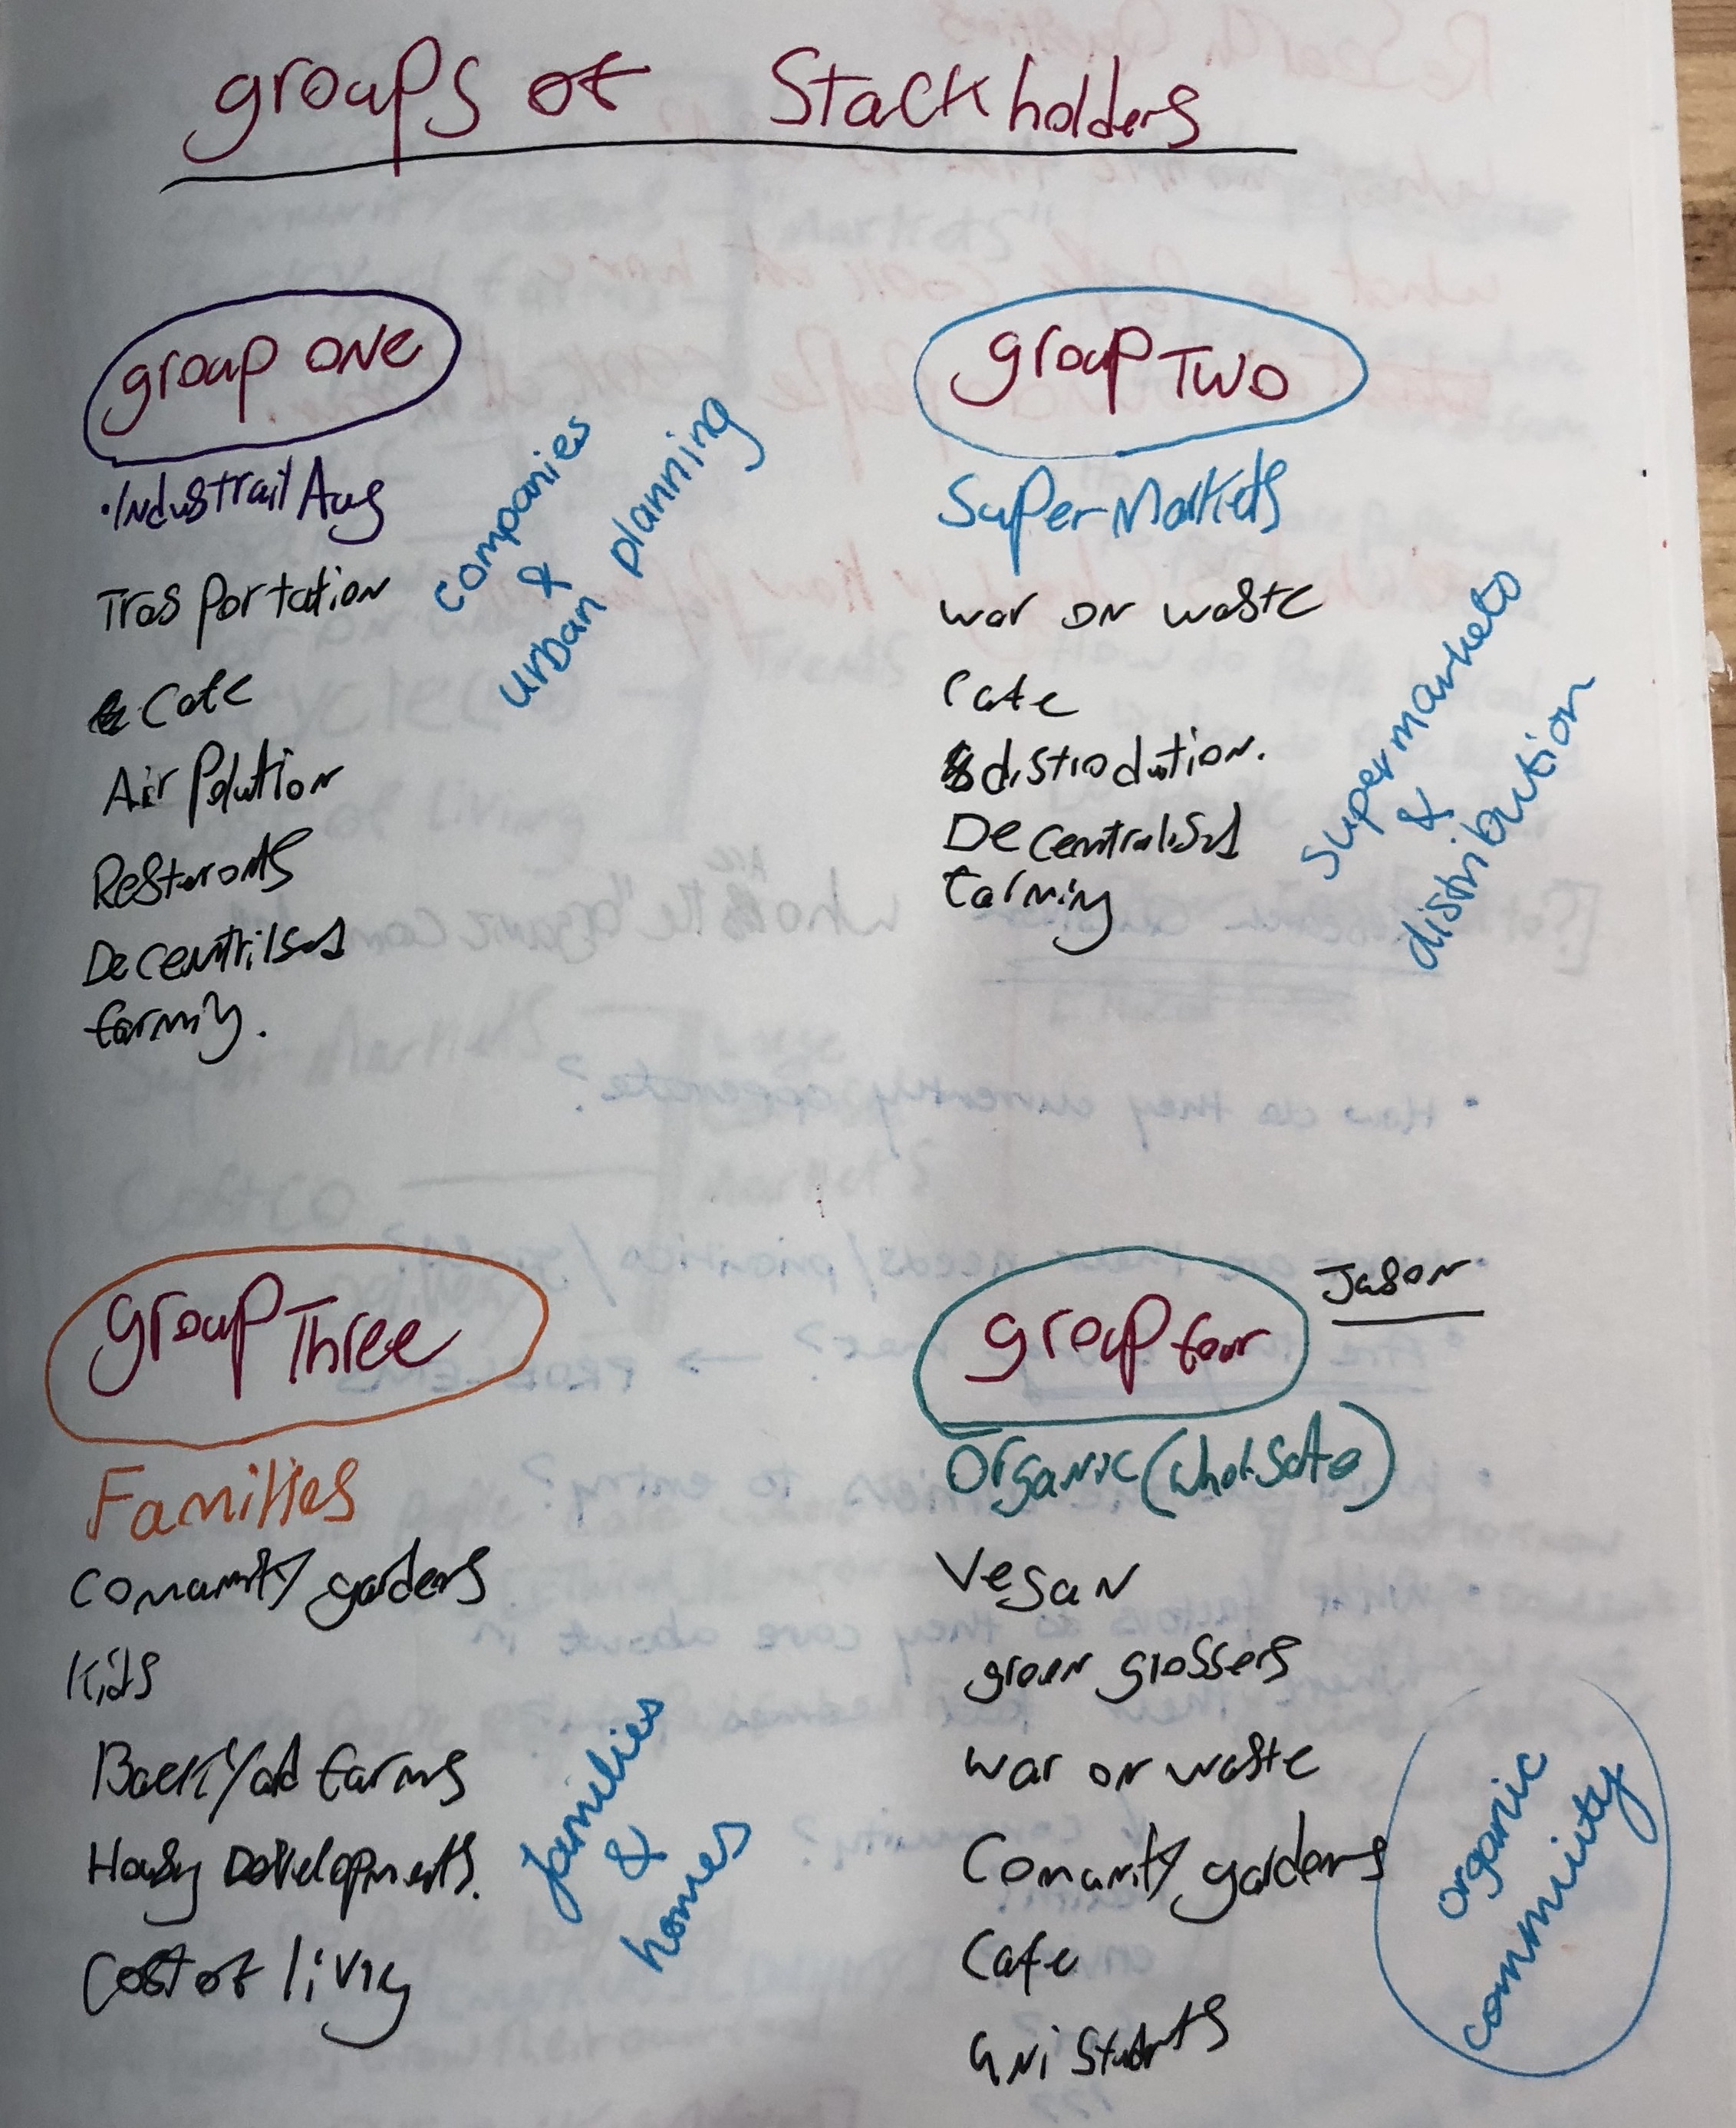 groups of Stackholders
group ONE
• Industrail Aug
Trasportation
Cafe
Air Polution
Resturonts
Decentrilsed
farmiy.
companies
&
urban planning
group TWO
SuperMarkets
war on waste
Cafe
distrodution.
Decentralised
farming
supermarkets
&
distribution
group Three
Families
Comunity gardens
Kids
Backyad farms
Housy Developments.
Cost of living
families
&
homes
group four
Jason
Organic (wholsale)
Vegan
green grossers
war on waste
Comunity gardens
Cafe
uni students
organic
community